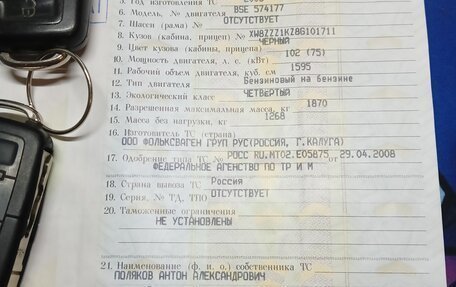 5. Год изготовления ТС
6. Модель, № двигателя BSE 574177
7. Шасси (рама) № ОТСУТСТВУЕТ
8. Кузов (кабина, прицеп) № XW8ZZZ1KZ8G101711
9. Цвет кузова (кабины, прицепа) ЧЕРНЫЙ
10. Мощность двигателя, л. с. (кВт) 102 (75)
11. Рабочий объем двигателя, куб. см 1595
12. Тип двигателя Бензиновый на бензине
13. Экологический класс ЧЕТВЕРТЫЙ
14. Разрешенная максимальная масса, кг 1870
15. Масса без нагрузки, кг 1268
16. Изготовитель ТС (страна)
ООО ФОЛЬКСВАГЕН ГРУП РУС(РОССИЯ, Г.КАЛУГА)
17. Одобрение типа ТС № РОСС RU.MT02.E05875 от 29.04.2008
ФЕДЕРАЛЬНОЕ АГЕНСТВО ПО ТР И М
18. Страна вывоза ТС Россия
19. Серия, № ТД, ТПО ОТСУТСТВУЕТ
20. Таможенные ограничения
НЕ УСТАНОВЛЕНЫ
21. Наименование (ф. и. о.) собственника ТС
ПОЛЯКОВ АНТОН АЛЕКСАНДРОВИЧ